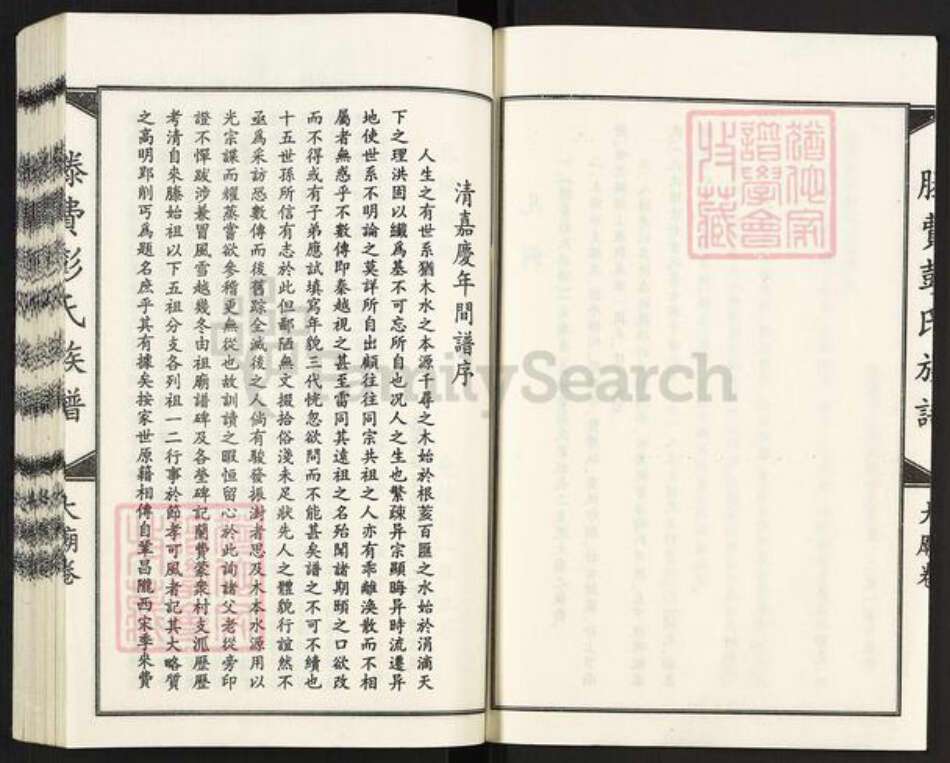 滕費彭氏族譜
大廟卷
猶他家
譜學會
收藏
清嘉慶年間譜序
人生之有世系猶木水之本源千尋之木始於根荄百匯之水始於涓滴天
下之理洪固以纖為基不可忘所自也况人之生也繁疎异宗顯晦异時流遷异
地使世系不明論之莫詳所自出顧往往同宗共祖之人亦有乖離渙散而不相
屬者無惑乎不數傳即秦越視之甚至雷同其遠祖之名殆聞諸期頤之口欲改
而不得或有子弟應試填寫年貌三代恍忽欲問而不能甚矣譜之不可不續也
十五世孫所信有志於此但鄙陋無文掇拾俗淺未足狀先人之體貌行誼然不
亟為采訪恐數傳而後舊踪全滅後之人倘有駿發振澍者思及木本水源用以
光宗諜而耀蒸嘗欲參稽更無從也故訓讀之暇恒留心於此詢諸父老從旁印
證不憚跋涉兼冒風雪越幾冬由祖廟譜碑及各塋碑記蘭費蒙衆村支派歷歷
考清自來滕始祖以下五祖分支各列祖一二行事於節孝可風者記其大略質
之高明郢削丐為題名庶乎其有據矣按家世原籍相傳自鞏昌隴西宋季來費
滕費彭氏族譜
大廟卷
FamilySearch